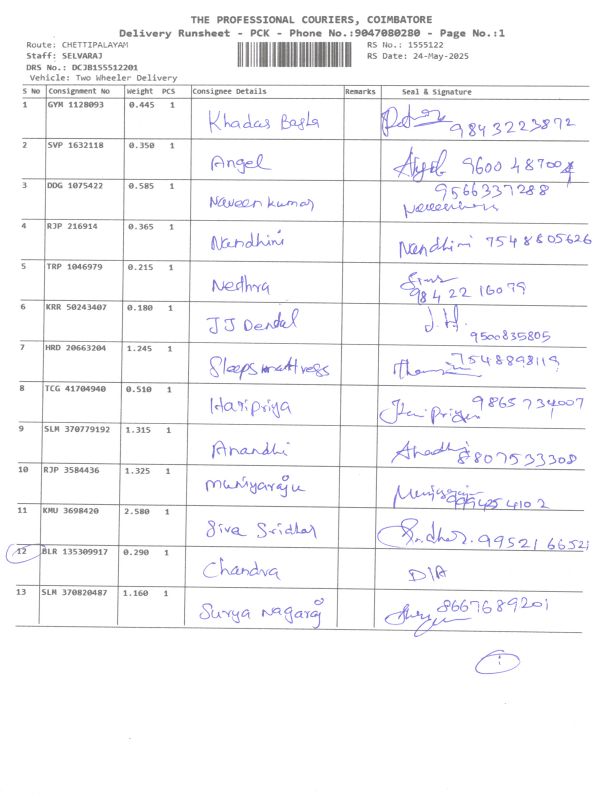 THE PROFESSIONAL COURIERS, COIMBATORE
Delivery Runsheet - PCK - Phone No.:9047080280 - Page No.:1
Route: CHETTIPALAYAM RS No.: 1555122
Staff: SELVARAJ RS Date: 24-May-2025
DRS No.: DCJB155512201
Vehicle: Two Wheeler Delivery
S No Consignment No Weight PCS Consignee Details Remarks Seal & Signature
1 GYM 1128093 0.445 1
Khadas Bagla 9843223872
2 SVP 1632118 0.350 1
Angel 9600487004
3 DDG 1075422 0.585 1 9566337288
Naveen kumar
4 RJP 216914 0.365 1
Nandhini Nandhini 7548805626
5 TRP 1046979 0.215 1
Nethra 9842216079
6 KRR 50243407 0.180 1
JJ Dental 9500835805
7 HRD 20663204 1.245 1 7548898119
Sleeps mattress
8 TCG 41704940 0.510 1 9865734007
Haripriya Hari Priya
9 SLM 370779192 1.315 1
Anandhi 8807533308
10 RJP 3584436 1.325 1
Muniyaraju 9994254102
11 KMU 3698420 2.580 1
Siva Sridhar Sridhar. 9952166521
12 BLR 135309917 0.290 1
Chandra D/A
13 SLM 370820487 1.160 1 8667689201
Surya Nagaraj
1